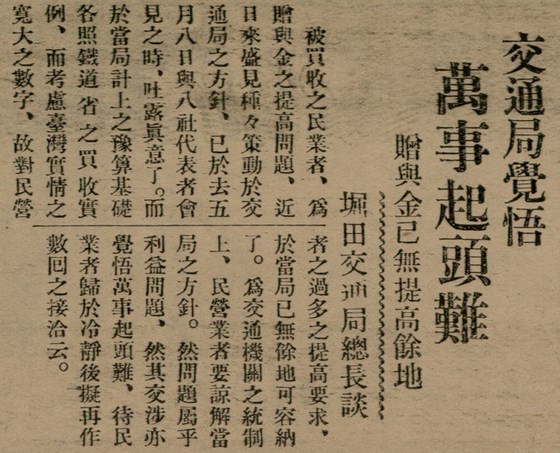 交通局覺悟
萬事起頭難
贈與金已無提高餘地
堀田交通局總長談
被買收之民業者、爲
贈與金之提高問題、近
日來盛見種々策動於交
通局之方針、已於去五
月八日與八社代表者會
見之時、吐露眞意了。而
於當局計上之豫算基礎
各照鐵道省之買收實
例、而考慮臺灣實情之
寬大之數字、故對民營
者之過多之提高要求、
於當局已無餘地可容納
了。爲交通機關之統制
上、民營業者要諒解當
局之方針。然問題屬乎
利益問題、然其交涉亦
覺悟萬事起頭難、待民
業者歸於冷靜後擬再作
數回之接洽云。